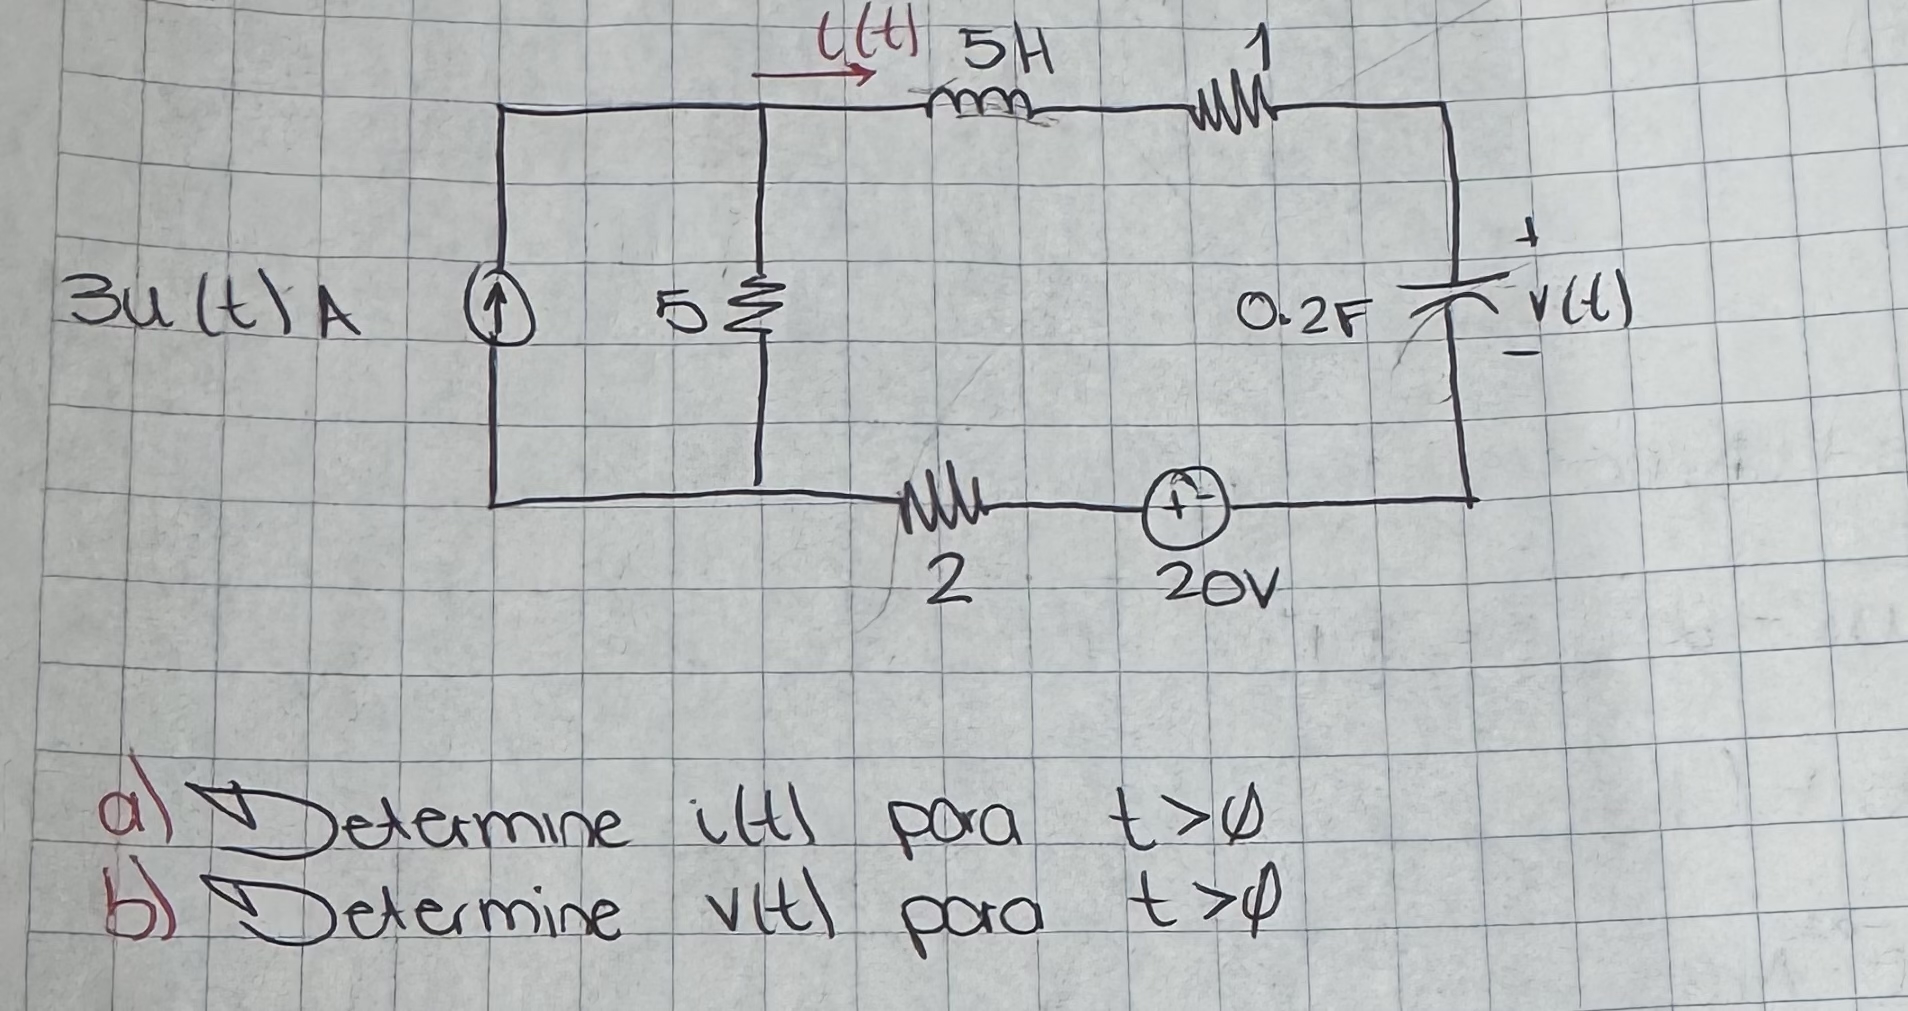 i(t) 5H 1
3u(t) A 5 0.2F + v(t) −
+ −
2 20V
a) Determine i(t) para t>∅
b) Determine v(t) para t>∅